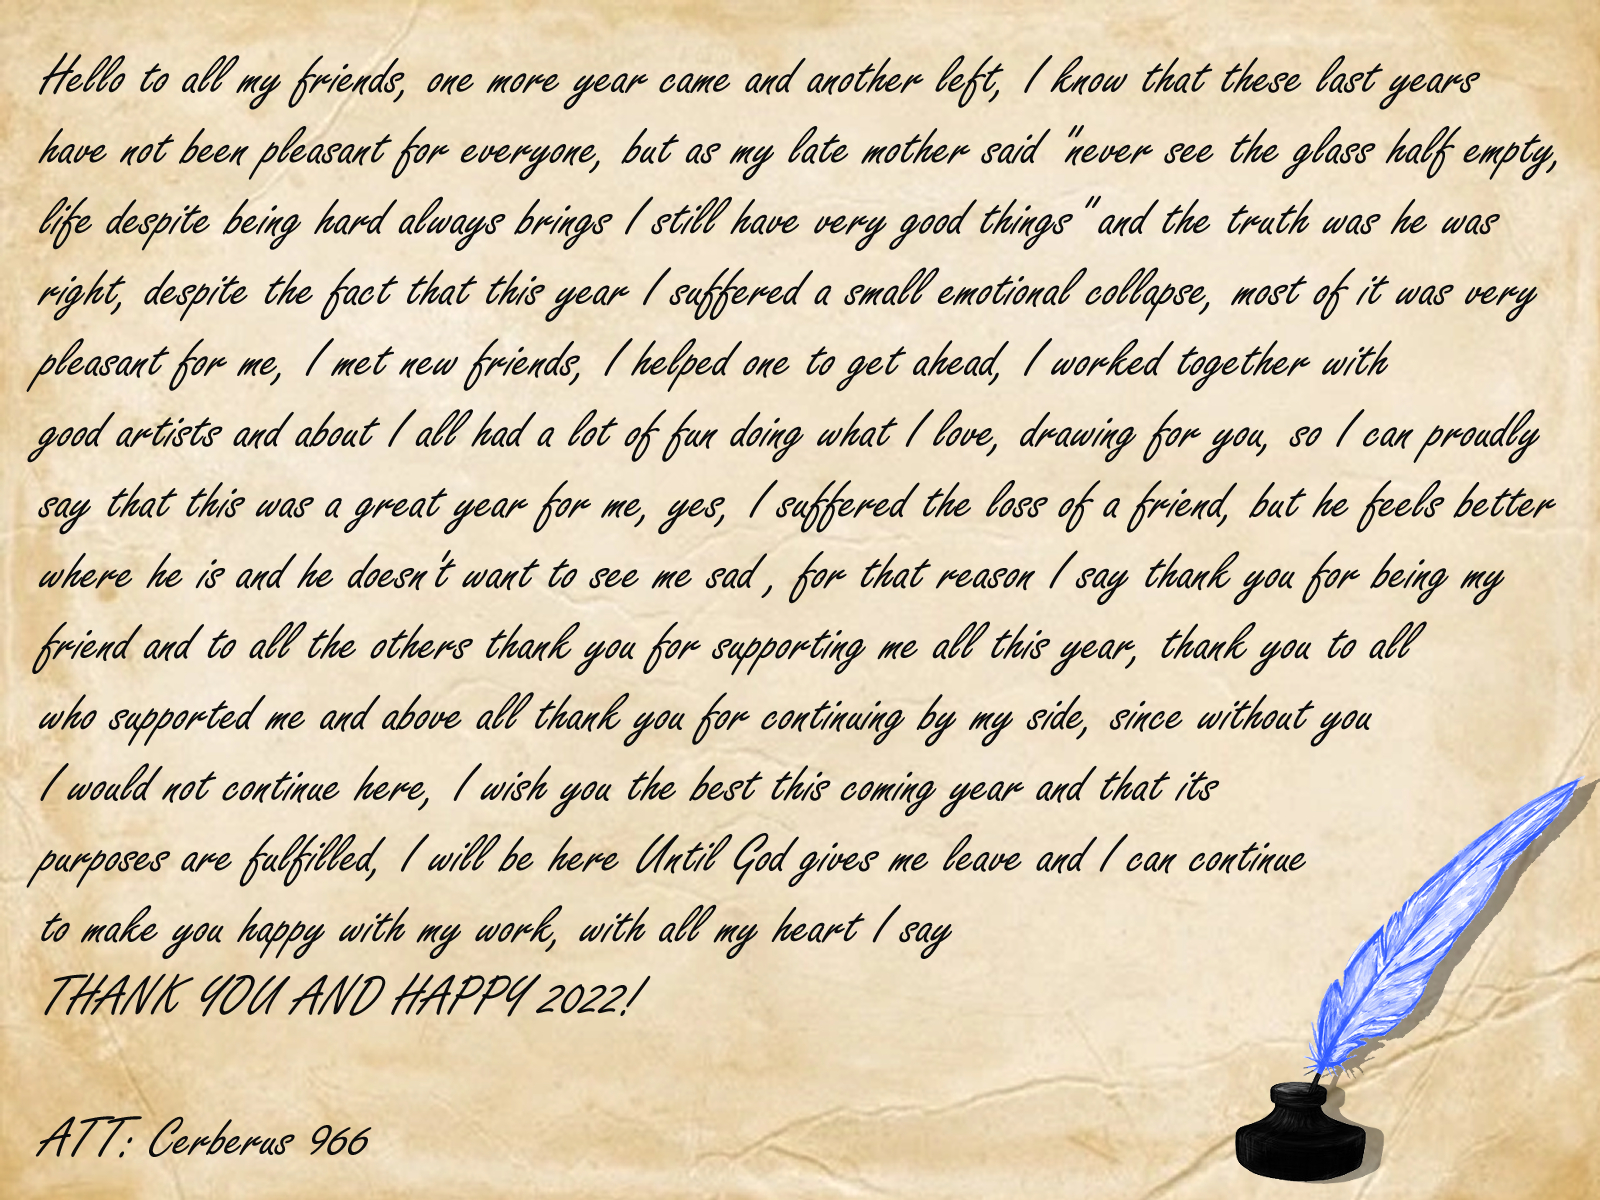 Hello to all my friends, one more year came and another left, I know that these last years
have not been pleasant for everyone, but as my late mother said "never see the glass half empty,
life despite being hard always brings I still have very good things" and the truth was he was
right, despite the fact that this year I suffered a small emotional collapse, most of it was very
pleasant for me, I met new friends, I helped one to get ahead, I worked together with
good artists and about I all had a lot of fun doing what I love, drawing for you, so I can proudly
say that this was a great year for me, yes, I suffered the loss of a friend, but he feels better
where he is and he doesn't want to see me sad , for that reason I say thank you for being my
friend and to all the others thank you for supporting me all this year, thank you to all
who supported me and above all thank you for continuing by my side, since without you
I would not continue here, I wish you the best this coming year and that its
purposes are fulfilled, I will be here Until God gives me leave and I can continue
to make you happy with my work, with all my heart I say
THANK YOU AND HAPPY 2022!
ATT: Cerberus 966